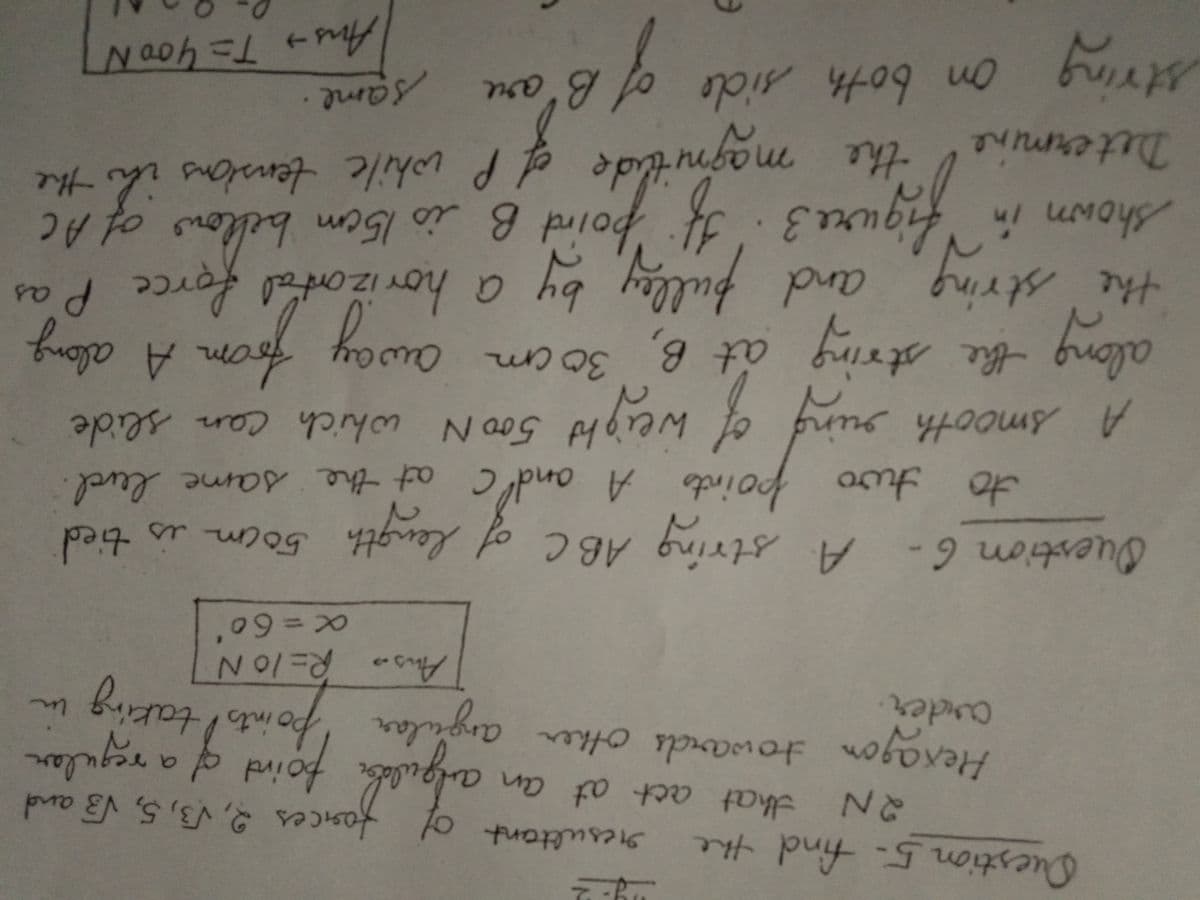 Question 5- find the resultant of forces 2, √3, 5, √3 and
2N that act at an angular point of a regular
Hexagon towards other angular points taking in
order.
Ans→ R=10N
α = 60°
Question 6- A string ABC of length 50cm is tied
to two points A and C at the same level.
A smooth ring of weight 500N which can slide
along the string at B, 30cm away from A along
the string and pulley by a horizontal force P as
shown in figure 3. If point B is 15cm bellow of AC
Determine the magnitude of P while tensions in the
string on both side of B are same.
Ans→ T=400N